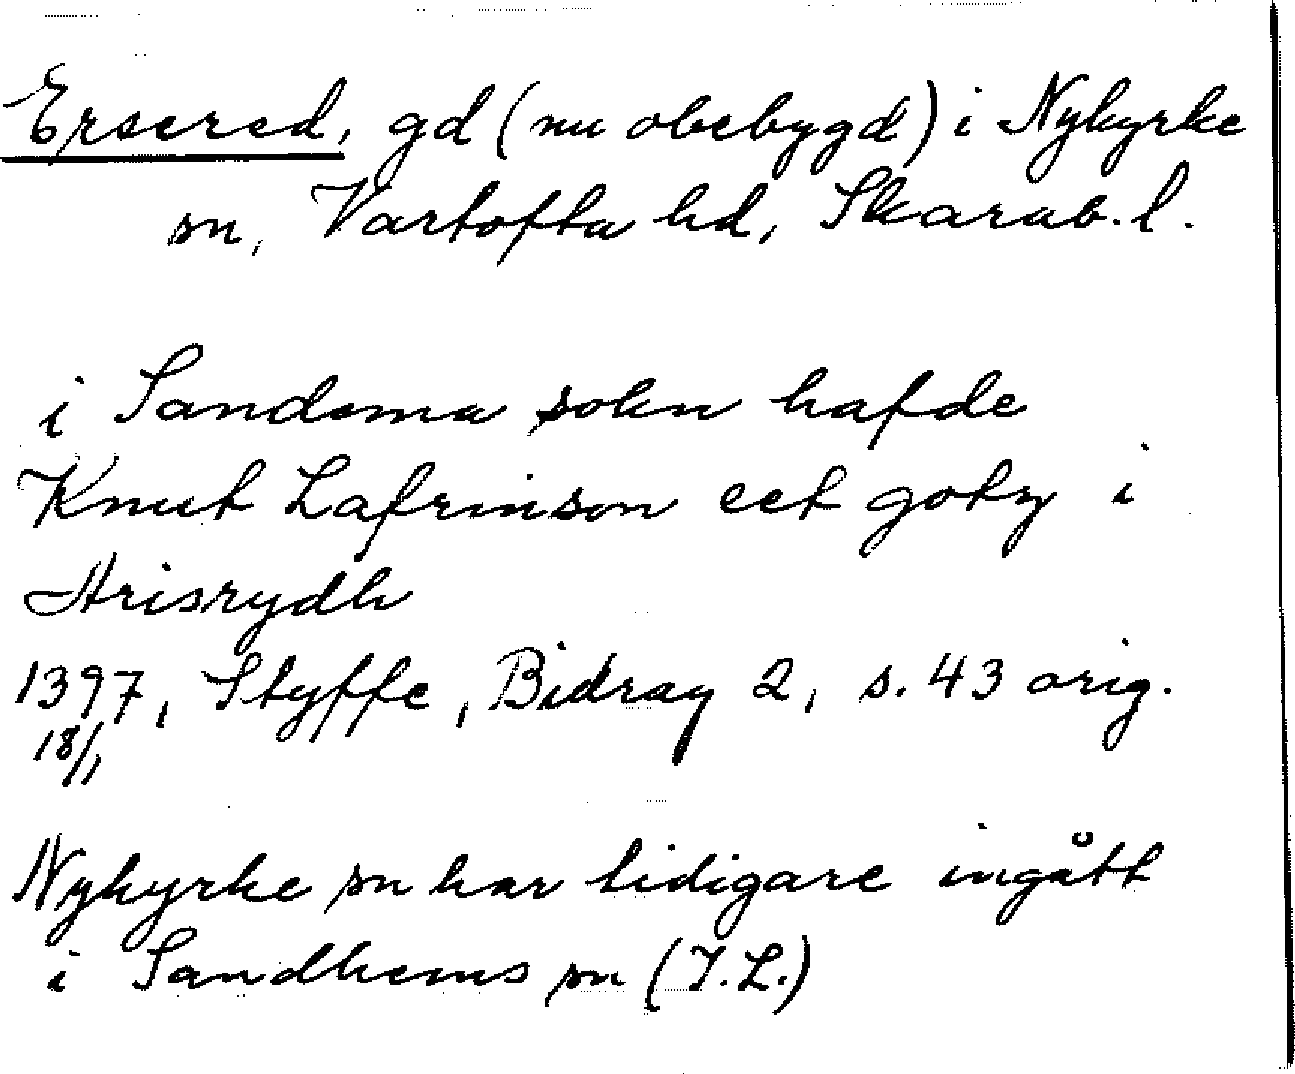 Ersered, gd (nu obebygd) i Nykyrke
sn, Vartofta hd, Skarab. l.
i Sandema sokn hafde
Knut Lafrinson eet gotz i
Hrisrydh
1397, Styffe, Bidrag 2, s. 43 orig.
18/1
Nykyrke sn har tidigare ingått
i Sandhems sn (I.L.)